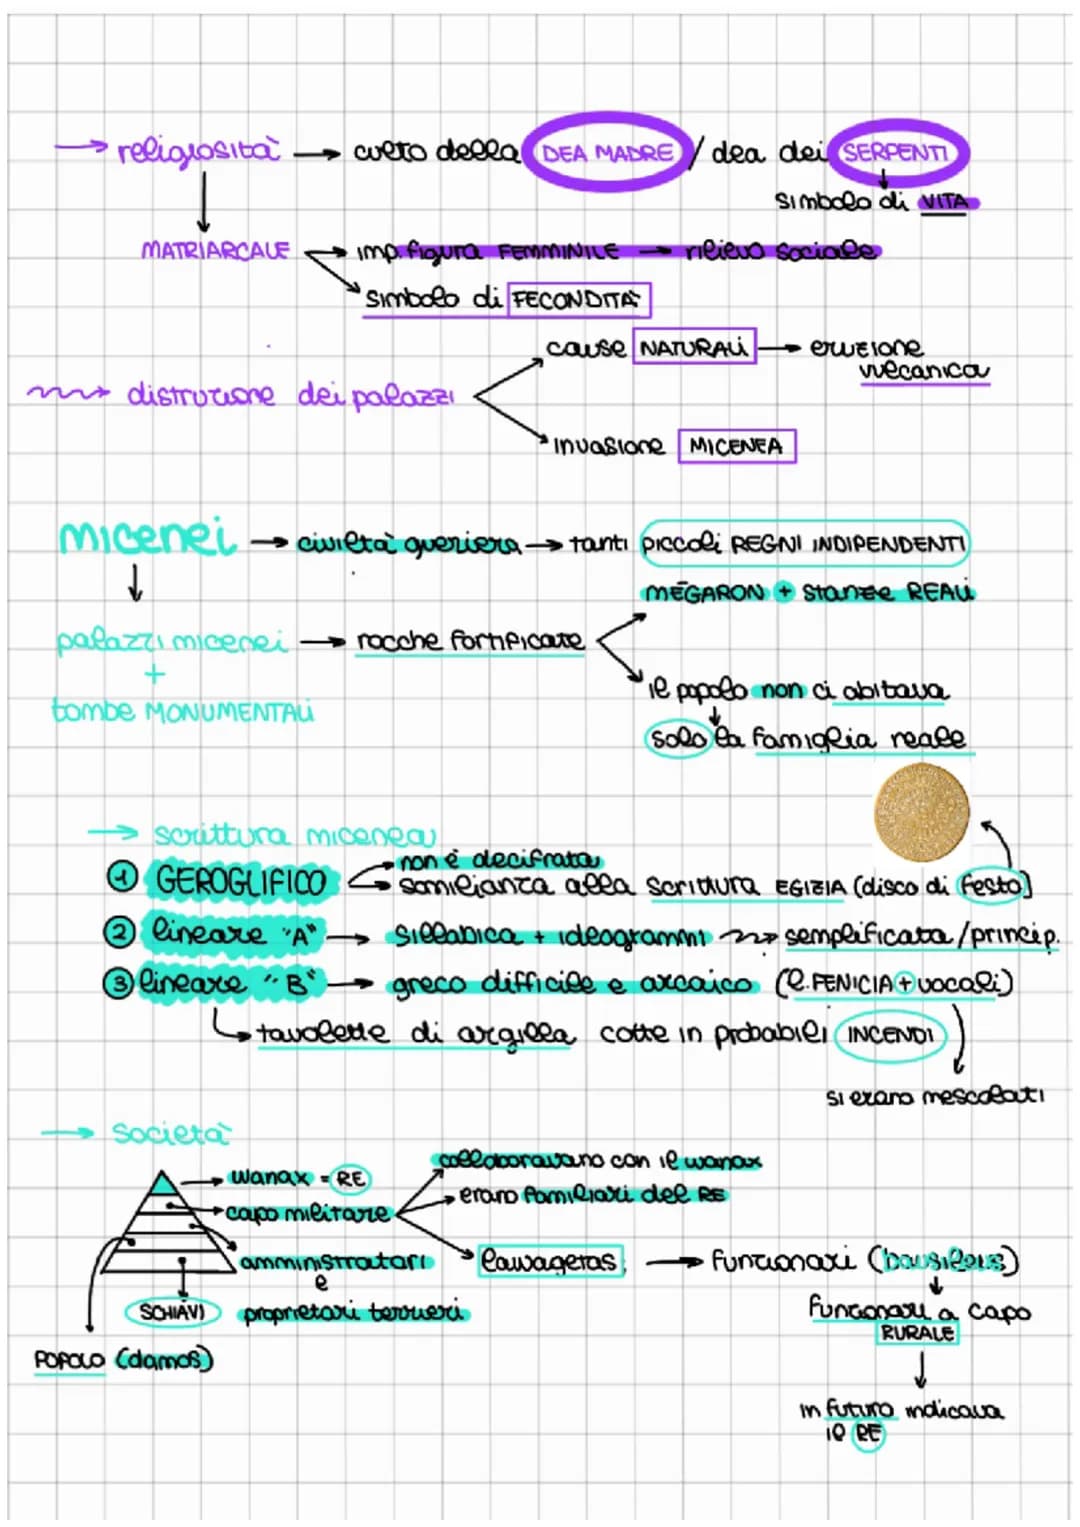 → religiosità → culto della DEA MADRE / dea dei SERPENTI
simbolo di VITA
MATRIARCALE → imp. figura FEMMINILE → rilievo sociale
simbolo di FECONDITÀ
cause NATURALI → eruzione
vulcanica
distruzione dei palazzi
invasione MICENEA
micenei → civiltà guerriera → tanti piccoli REGNI INDIPENDENTI
MÉGARON + stanze REALI
palazzi micenei → rocche fortificate
+
il popolo non ci abitava
tombe MONUMENTALI
solo la famiglia reale
→ scrittura micenea
non è decifrata
1 GEROGLIFICO → somilianza alla scrittura EGIZIA (disco di festo)
2 lineare "A" → sillabica + ideogrammi semplificata / princip.
3 lineare "B" → greco difficile e arcaico (l. FENICIA + vocali)
tavolette di argilla cotte in probabili INCENDI
si erano mescolati
→ società
collaboravano con il wanax
wanax = RE
erano familiari del RE
capo militare
amministratori
lawagetas → funzionari (basileus)
e
SCHIAVI
proprietari terrieri
funzionari a capo
RURALE
POPOLO (damos)
in futuro indicava
il RE